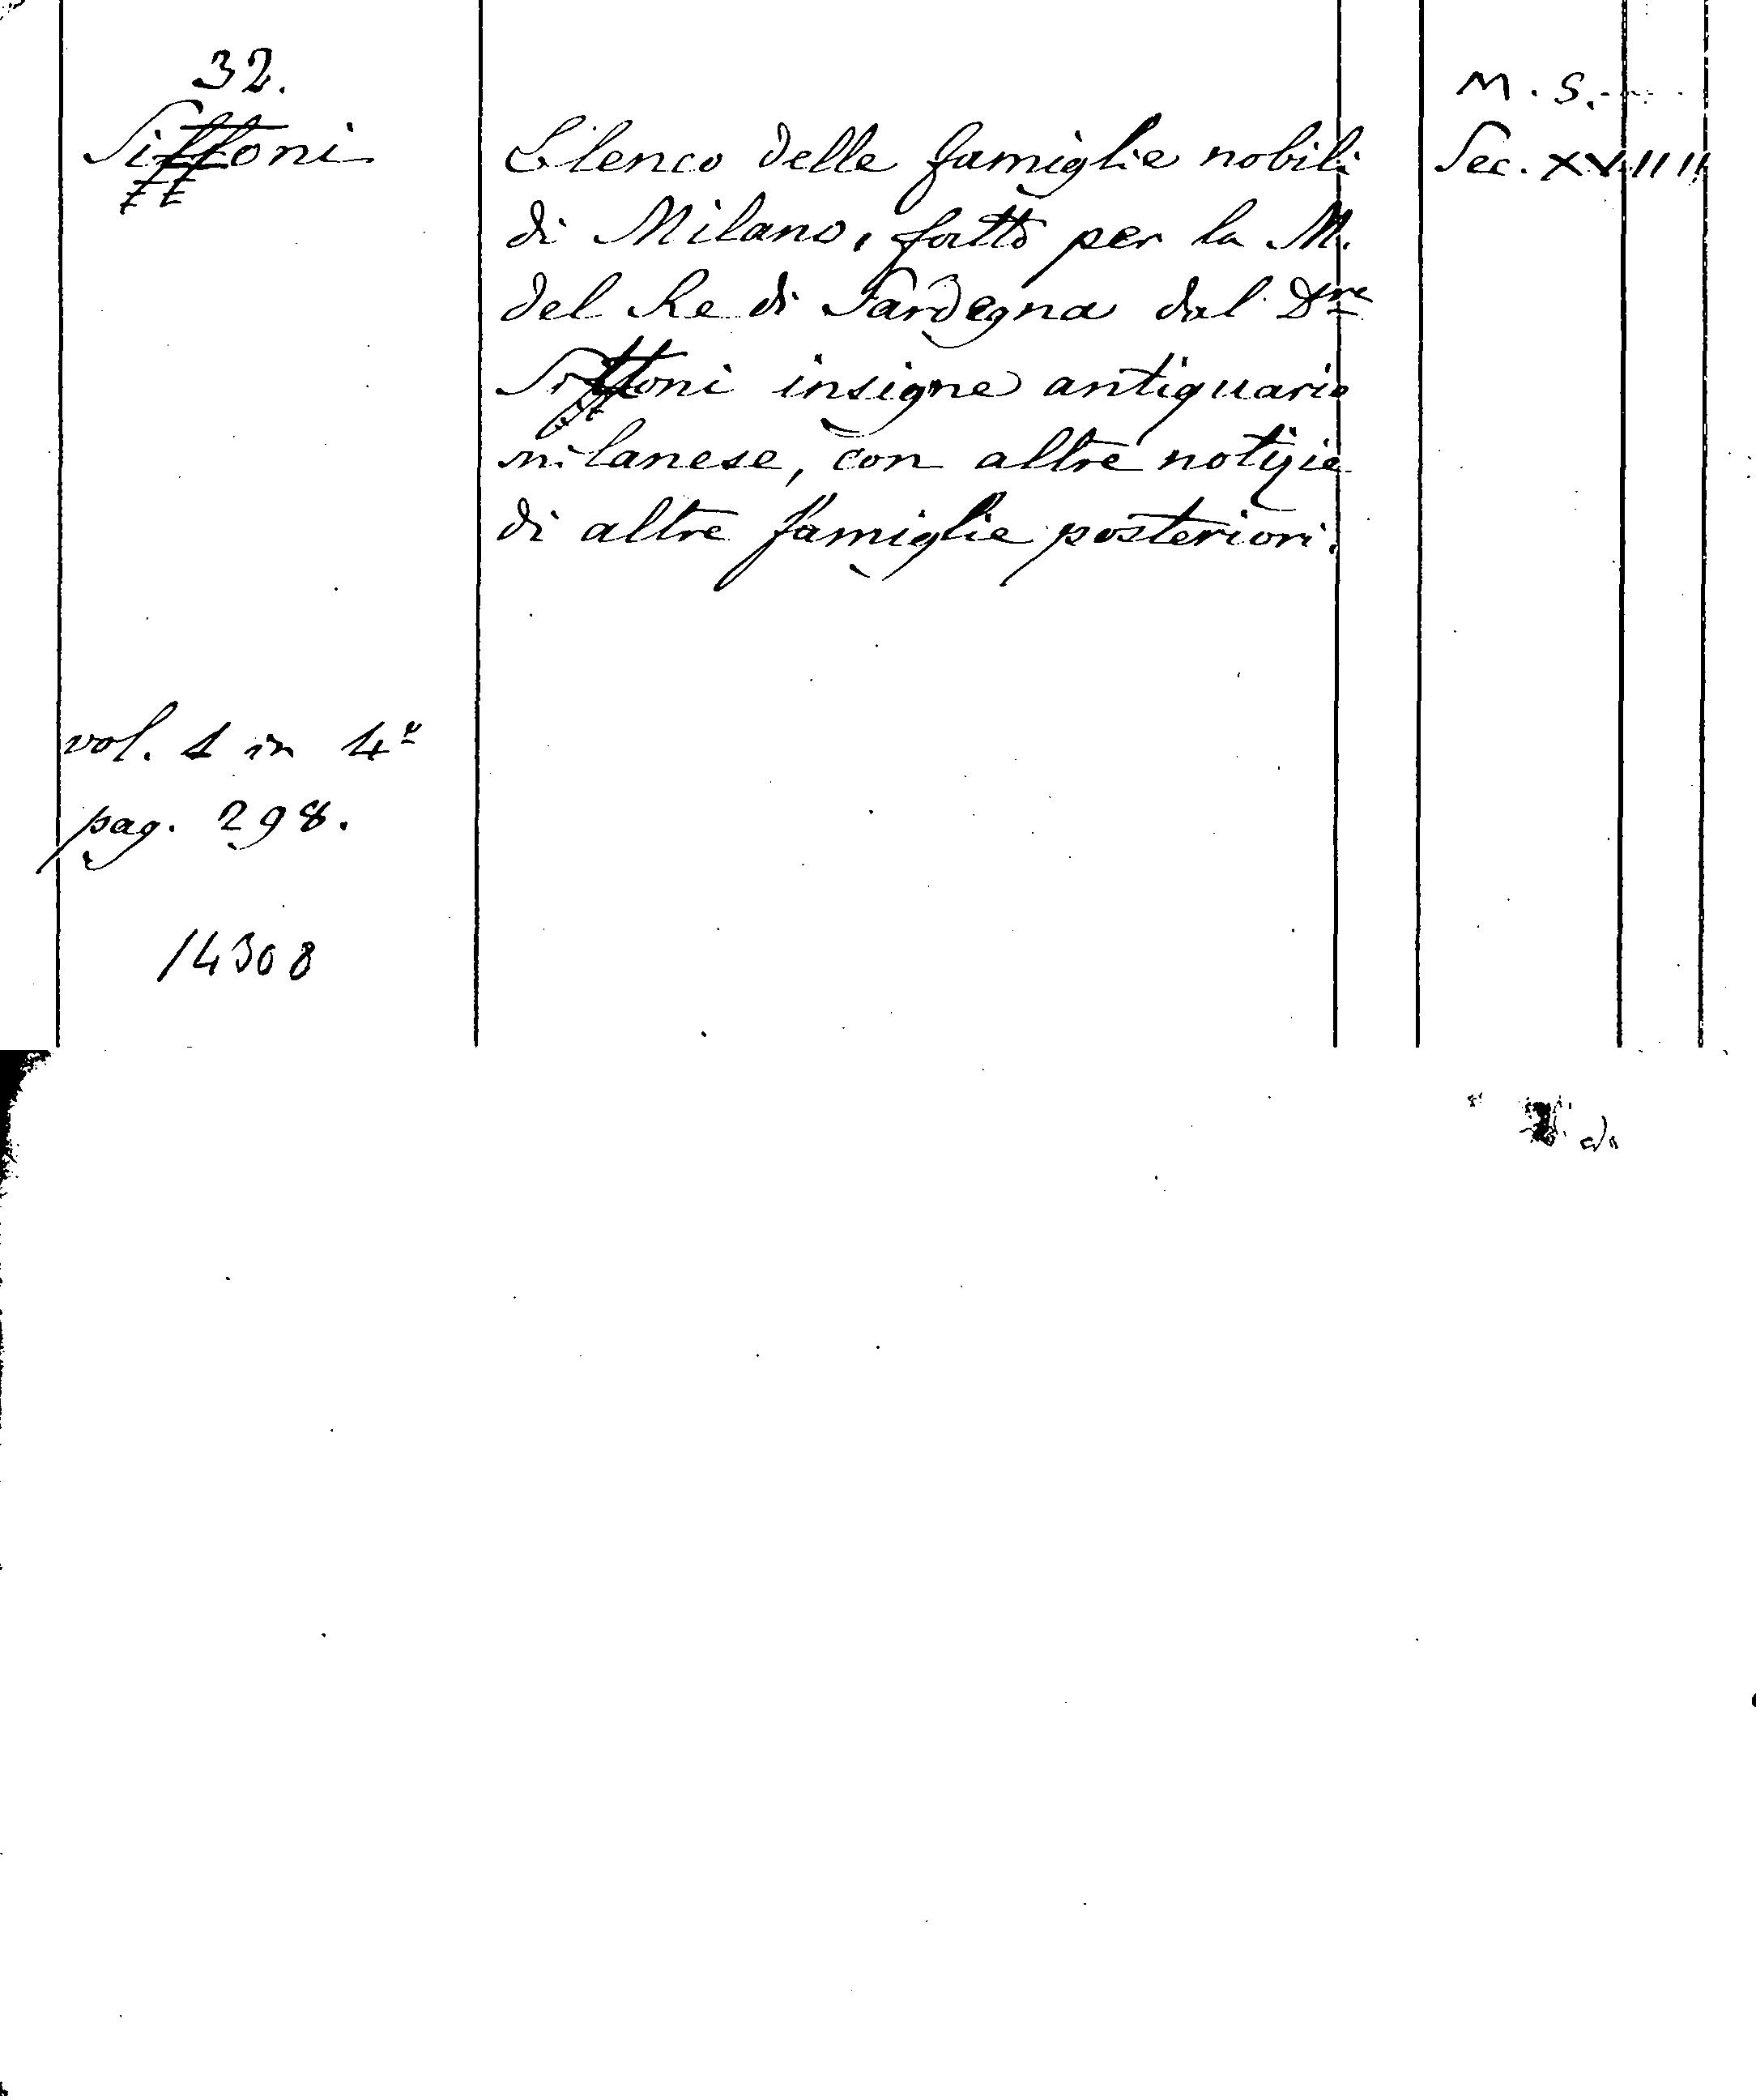 32.
Sittoni
tt
Elenco delle famiglie nobili
di Milano, fatto per la M.
del Re di Sardegna dal Dre
Sittoni insigne antiquario
milanese, con altre notizie
di altre famiglie posteriori.
M. S.
Sec. XVIII
vol. 1 in 4º
pag. 298.
14308